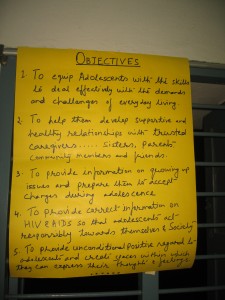 OBJECTIVES
1. To equip Adolescents with the skills
to deal effectively with the demands
and challenges of everyday living.
2. To help them develop supportive and
healthy relationships with trusted
caregivers..... Sisters, Parents
community members and friends.
3. To provide information on growing up
issues and prepare them to accept
changes during adolescence
4. To provide correct information on
HIV & AIDS so that adolescents act
responsibly towards themselves & Society
5. To provide unconditional positive regard to
adolescents and create spaces within which
they can express their thoughts & feelings